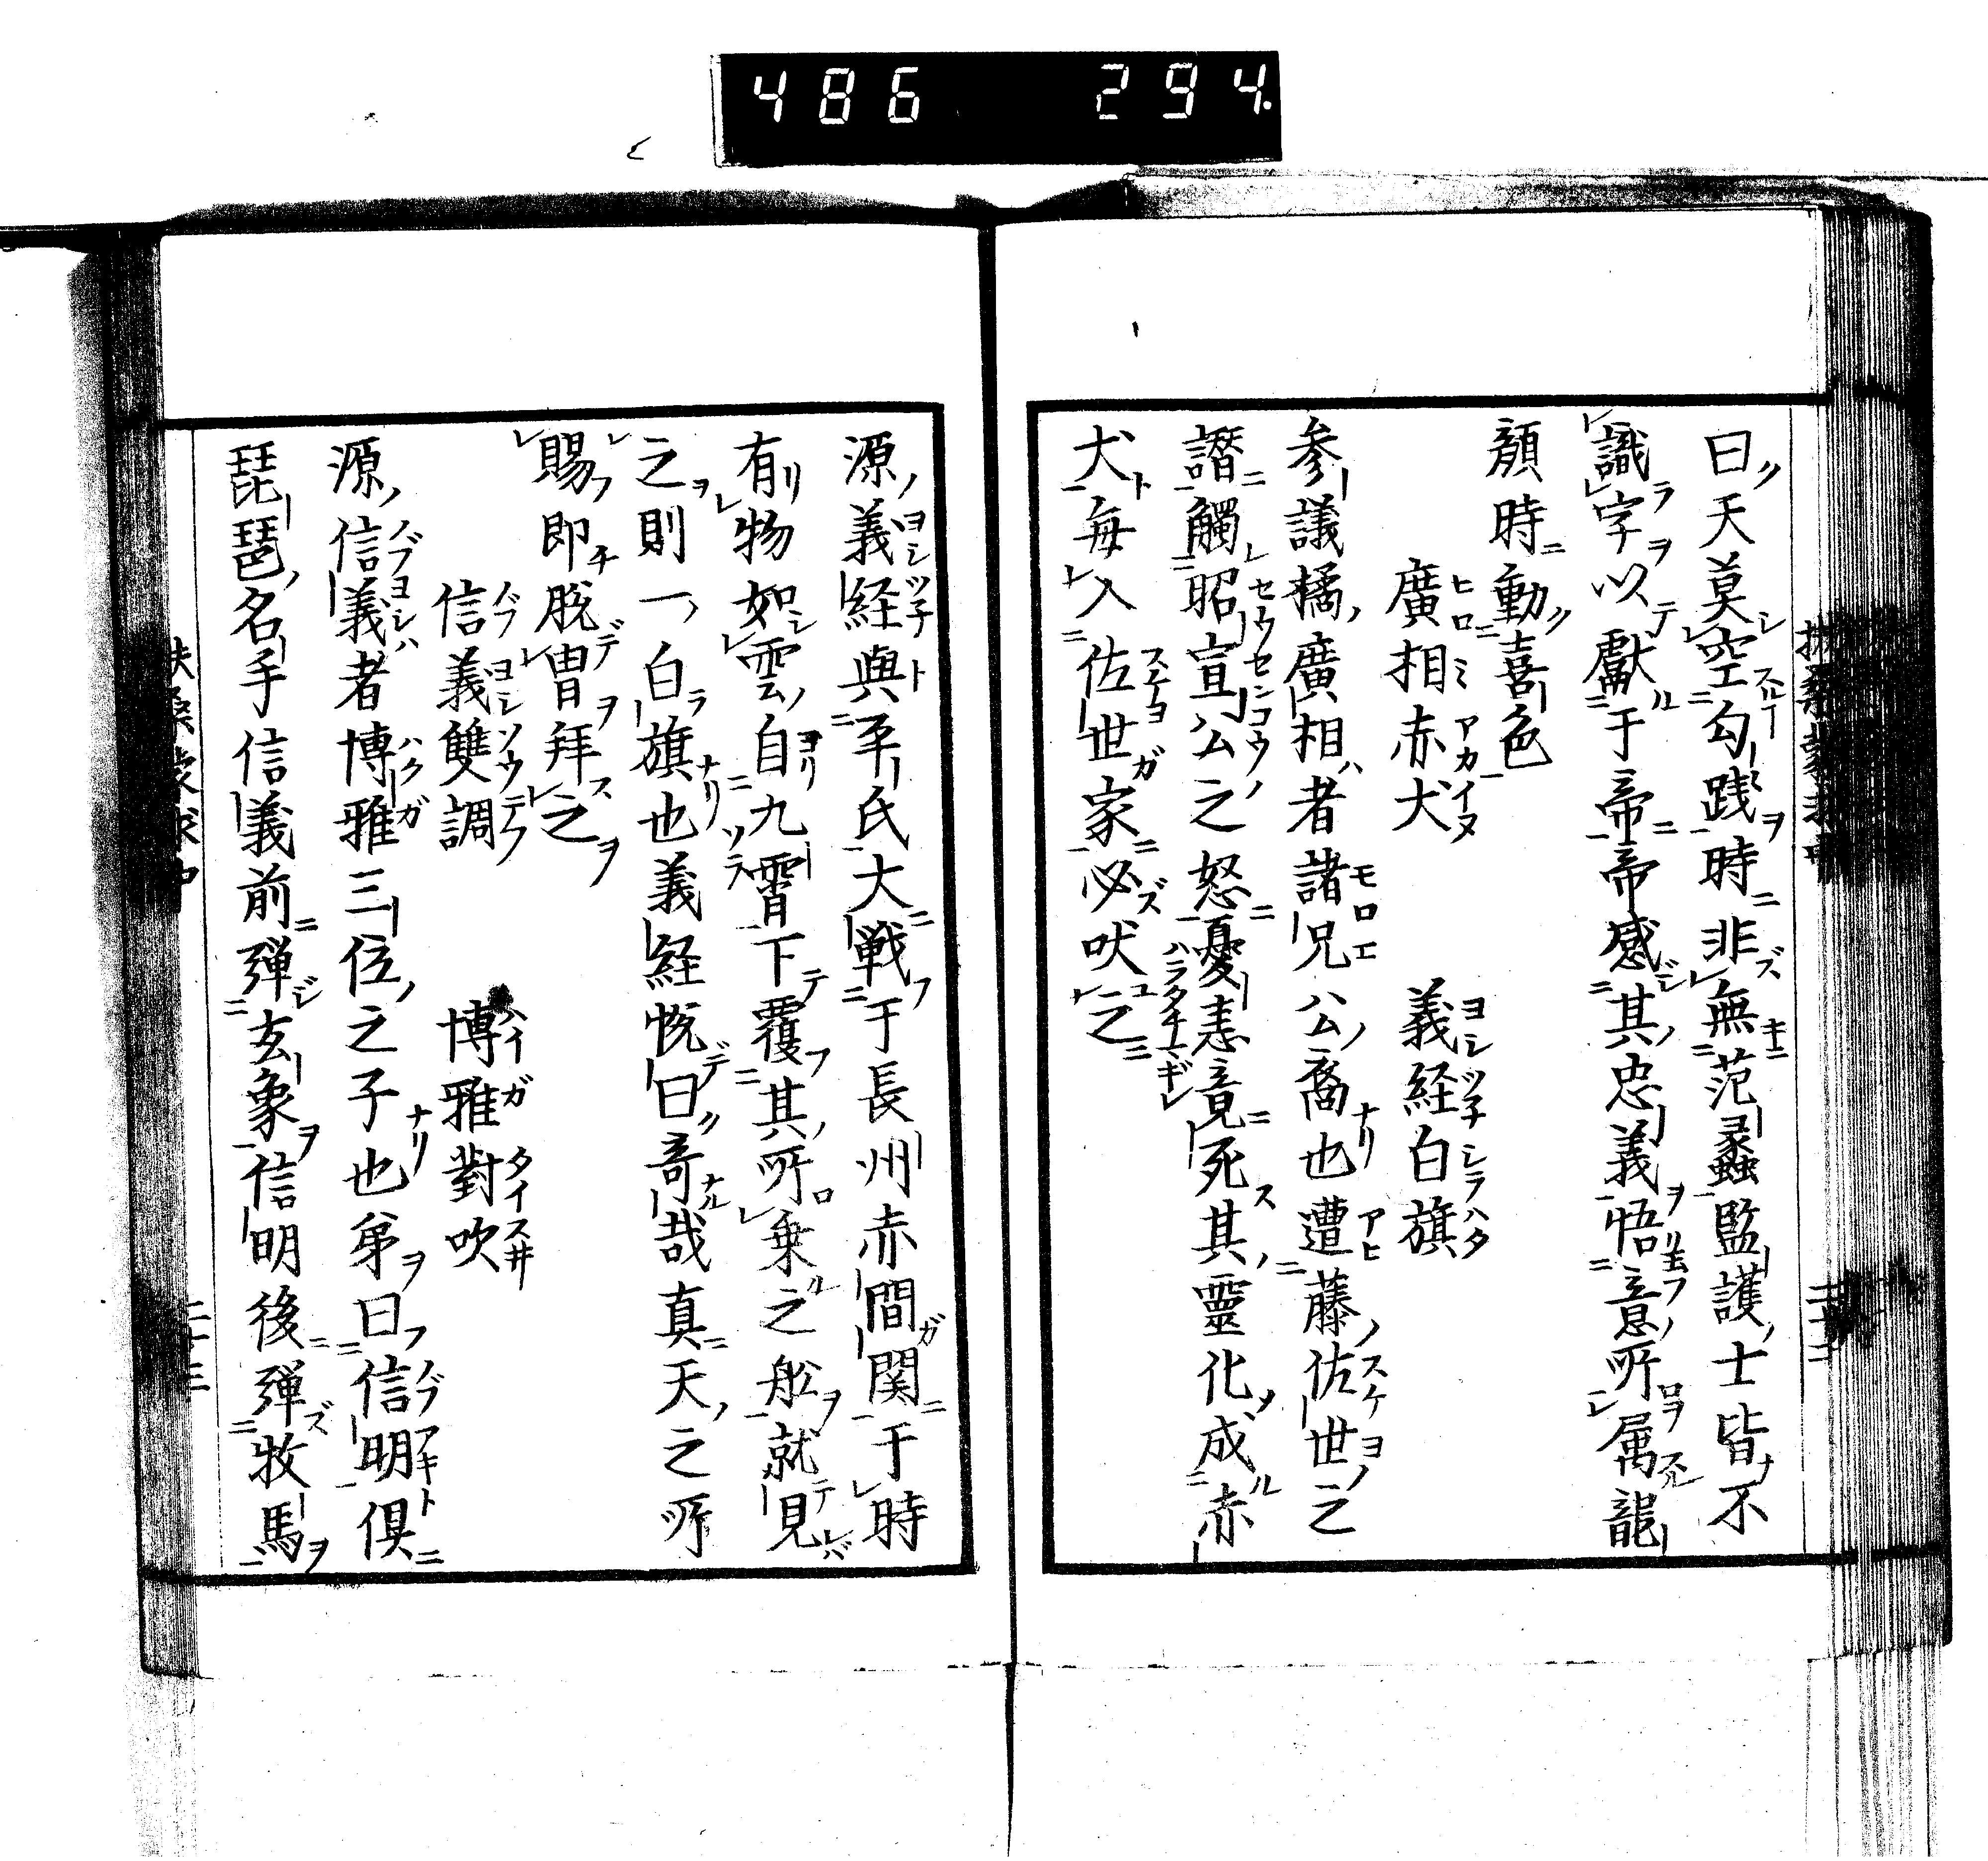 486 294.
曰天莫空勾践時非無范蠡監護士皆不
識字以獻于帝帝感其忠義悟意所属龍
顏時動喜色
廣相赤犬 義経白旗
参議橘廣相者諸兄公裔也遭藤佐世之
譖觸昭宣公之怒憂恚竟死其靈化成赤
犬毎入佐世家必吠之
源義経與平氏大戦于長州赤間関于時
有物如雲自九霄下覆其所乗之舩就見
之則一白旗也義経悦曰奇哉真天之所
賜即脱冑拜之
信義雙調 博雅對吹
源信義者博雅三位之子也弟曰信明倶
琵琶名手信義前弾玄象信明後弾牧馬